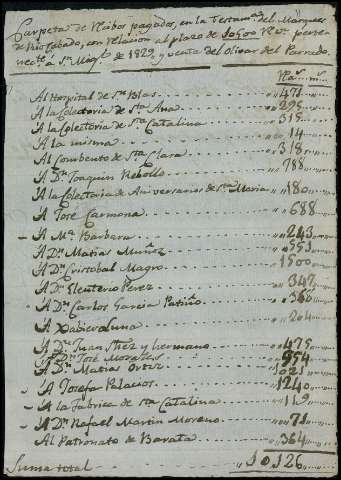 Carpeta de Recibos pagados, en la Testam.ª del Marques
de Rio Cabado, con relacion al plazo de 10,500 R.s v.n perte
nec.te á S.n Mig.l de 1829, y venta del Olivar del Parredo.
R.s v.n m.s
Al Hospital de S.n Blas 471
A la Colecturia de S.ta Ana 295
A la Colecturia de S.ta Catalina 315
A la misma 14
Al Combento de S.ta Clara 318
A D.n Joaquin Rebollo 788
A la Colecturia de Aniversarios de S.ta Maria 180
A José Carmona 688
A M.ª Barbara 243
A D.n Matias Muñoz 553
A D.n Cristobal Magro 1500
A D.n Eleuterio Perez 347
A D.n Carlos Garcia Patiño 360
A Xabier Luna 204
A D.n Juan Shez y hermano 475
A D.n José Morales 954
A D.n Matias Ortiz 1021
A Josefa Palacios 1240
A la fabrica de S.ta Catalina 119
A D.n Rafael Martin Moreno 71
Al Patronato de Barata 364
Suma total 10,126